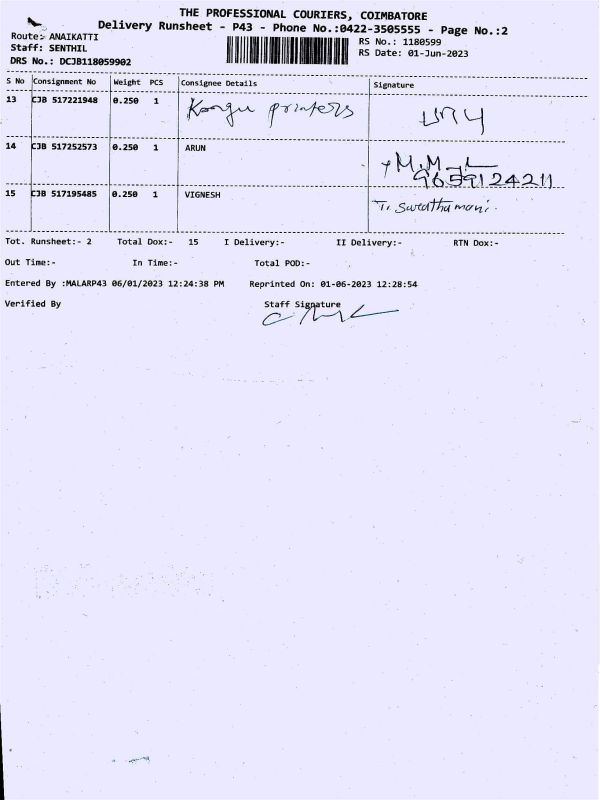 THE PROFESSIONAL COURIERS, COIMBATORE
Delivery Runsheet - P43 - Phone No.:0422-3505555 - Page No.:2
Route:- ANAIKATTI
Staff: SENTHIL
DRS No.: DCJB118059902
RS No.: 1180599
RS Date: 01-Jun-2023
S No Consignment No Weight PCS Consignee Details Signature
13 CJB 517221948 0.250 1 Kongu printers
14 CJB 517252573 0.250 1 ARUN
9659124211
15 CJB 517195485 0.250 1 VIGNESH T. Swathamani.
Tot. Runsheet:- 2 Total Dox:- 15 I Delivery:- II Delivery:- RTN Dox:-
Out Time:- In Time:- Total POD:-
Entered By :MALARP43 06/01/2023 12:24:38 PM Reprinted On: 01-06-2023 12:28:54
Verified By Staff Signature